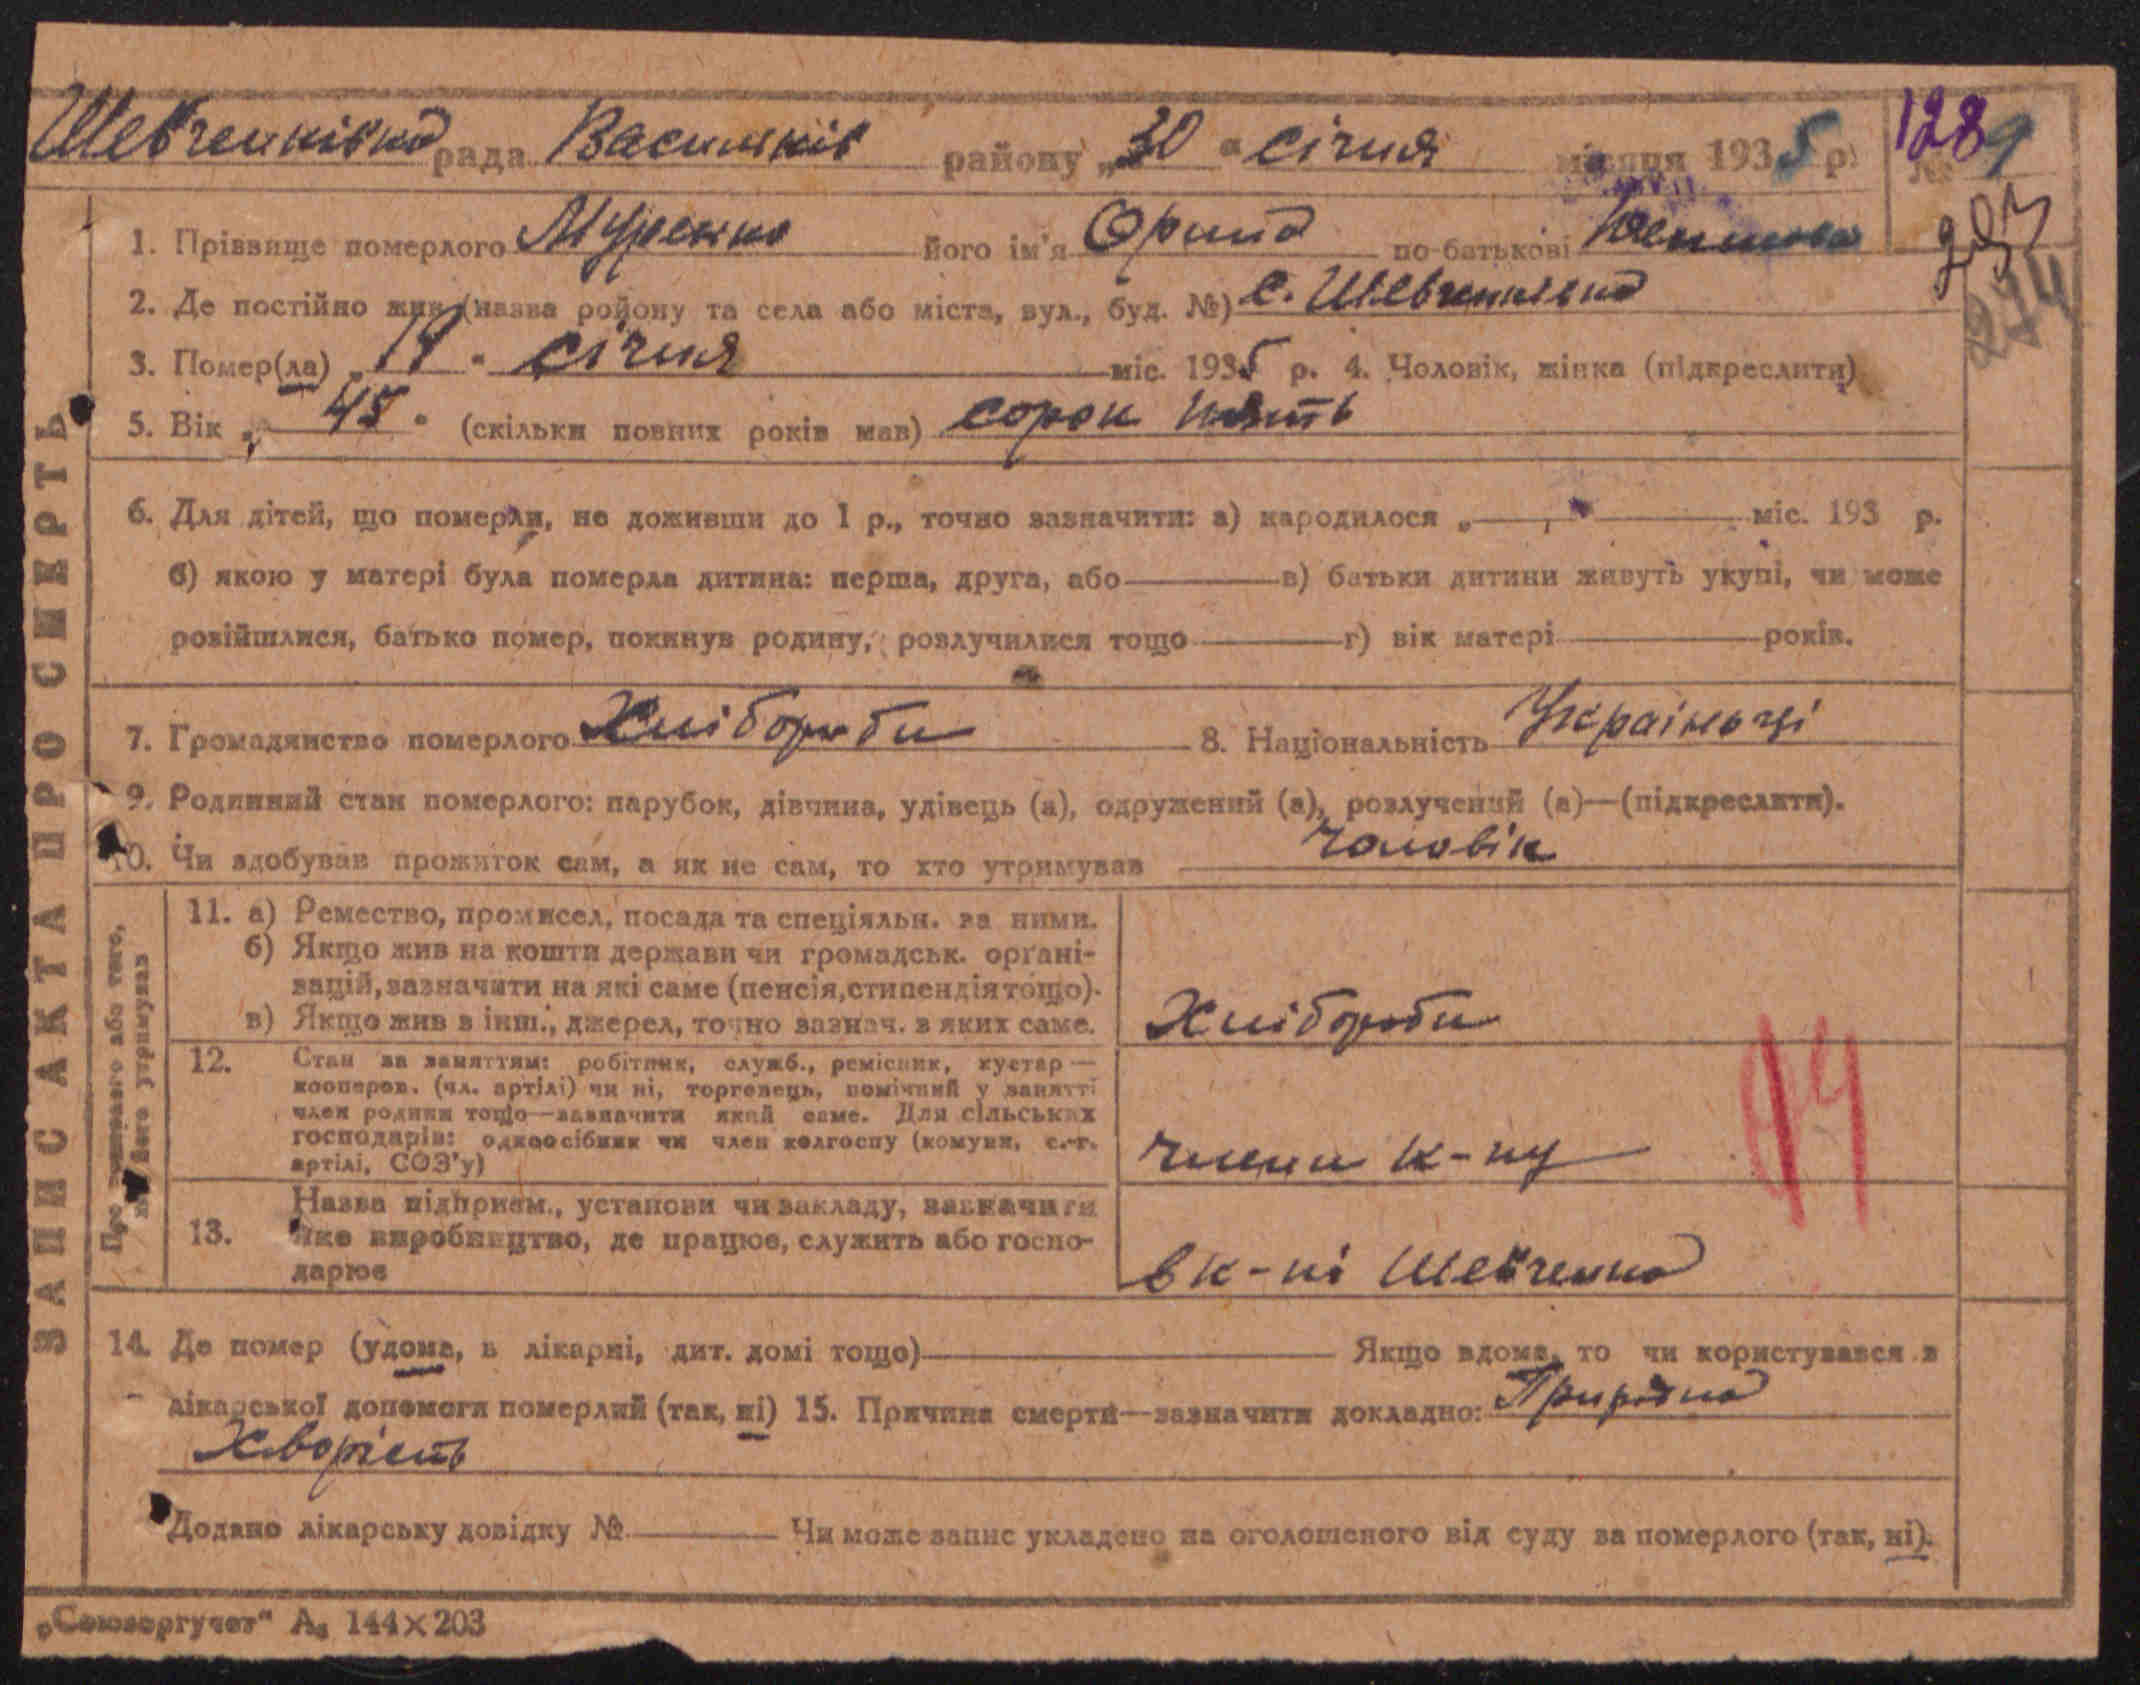 Шевченківка рада Васильків району „30“ січня місяця 1935 р. № 9
128
203
274
1. Прізвище померлого Муренко його ім'я Орина по-батькові
2. Де постійно жив (назва ройону та села або міста, вул., буд. №) с. Шевченківка
3. Помер(ла) „19“ січня міс. 1935 р. 4. Чоловік, жінка (підкреслити)
5. Вік „45“ (скільки повних років мав) сорок пять
6. Для дітей, що померли, не доживши до 1 р., точно зазначити: а) народилося „ “ міс. 193 р.
б) якою у матері була померла дитина: перша, друга, або в) батьки дитини живуть укупі, чи може
розійшлися, батько помер, покинув родину, розлучилися тощо г) вік матері років.
7. Громадянство померлого Хлібороби 8. Національність Україньці
9. Родинний стан померлого: парубок, дівчина, удівець (а), одружений (а), розлучений (а)—(підкреслити).
10. Чи здобував прожиток сам, а як не сам, то хто утримував Чоловік
ЗАПИС АКТА ПРО СМЕРТЬ
Про померлого або того, хто його утримував
11. а) Ремество, промисел, посада та спеціяльн. за ними.
б) Якщо жив на кошти держави чи громадськ. орґані-
зацій, зазначити на які саме (пенсія, стипендія тощо).
в) Якщо жив з інш. джерел, точно зазнач. з яких саме.
Хлібороби
12. Стан за заняттям: робітник, служб., ремісник, кустар—
кооперов. (чл. артілі) чи ні, торговець, помічний у занятті
член родини тощо—зазначити який саме. Для сільських
господарів: одноосібник чи член колгоспу (комуни, с.-г.
артілі, СОЗ'у)
члени к-пу
13. Назва підприєм., установи чи закладу, зазначити
яке виробництво, де працює, служить або госпо-
дарює
в к-пі Шевченка
14. Де помер (удома, в лікарні, дит. домі тощо) Якщо вдома, то чи користувався з
лікарської допомоги померлий (так, ні) 15. Причина смерти—зазначити докладно: Природна
Хворість
Додано лікарську довідку № Чи може запис укладено на оголошеного від суду за померлого (так, ні).
„Союзоргучет“ А₅ 144×203